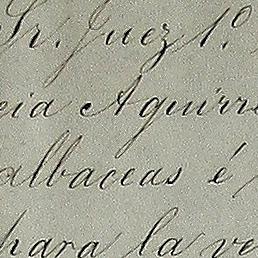 Sr. Juez 1.º
cia Aguirre
albaceas é
para la ve